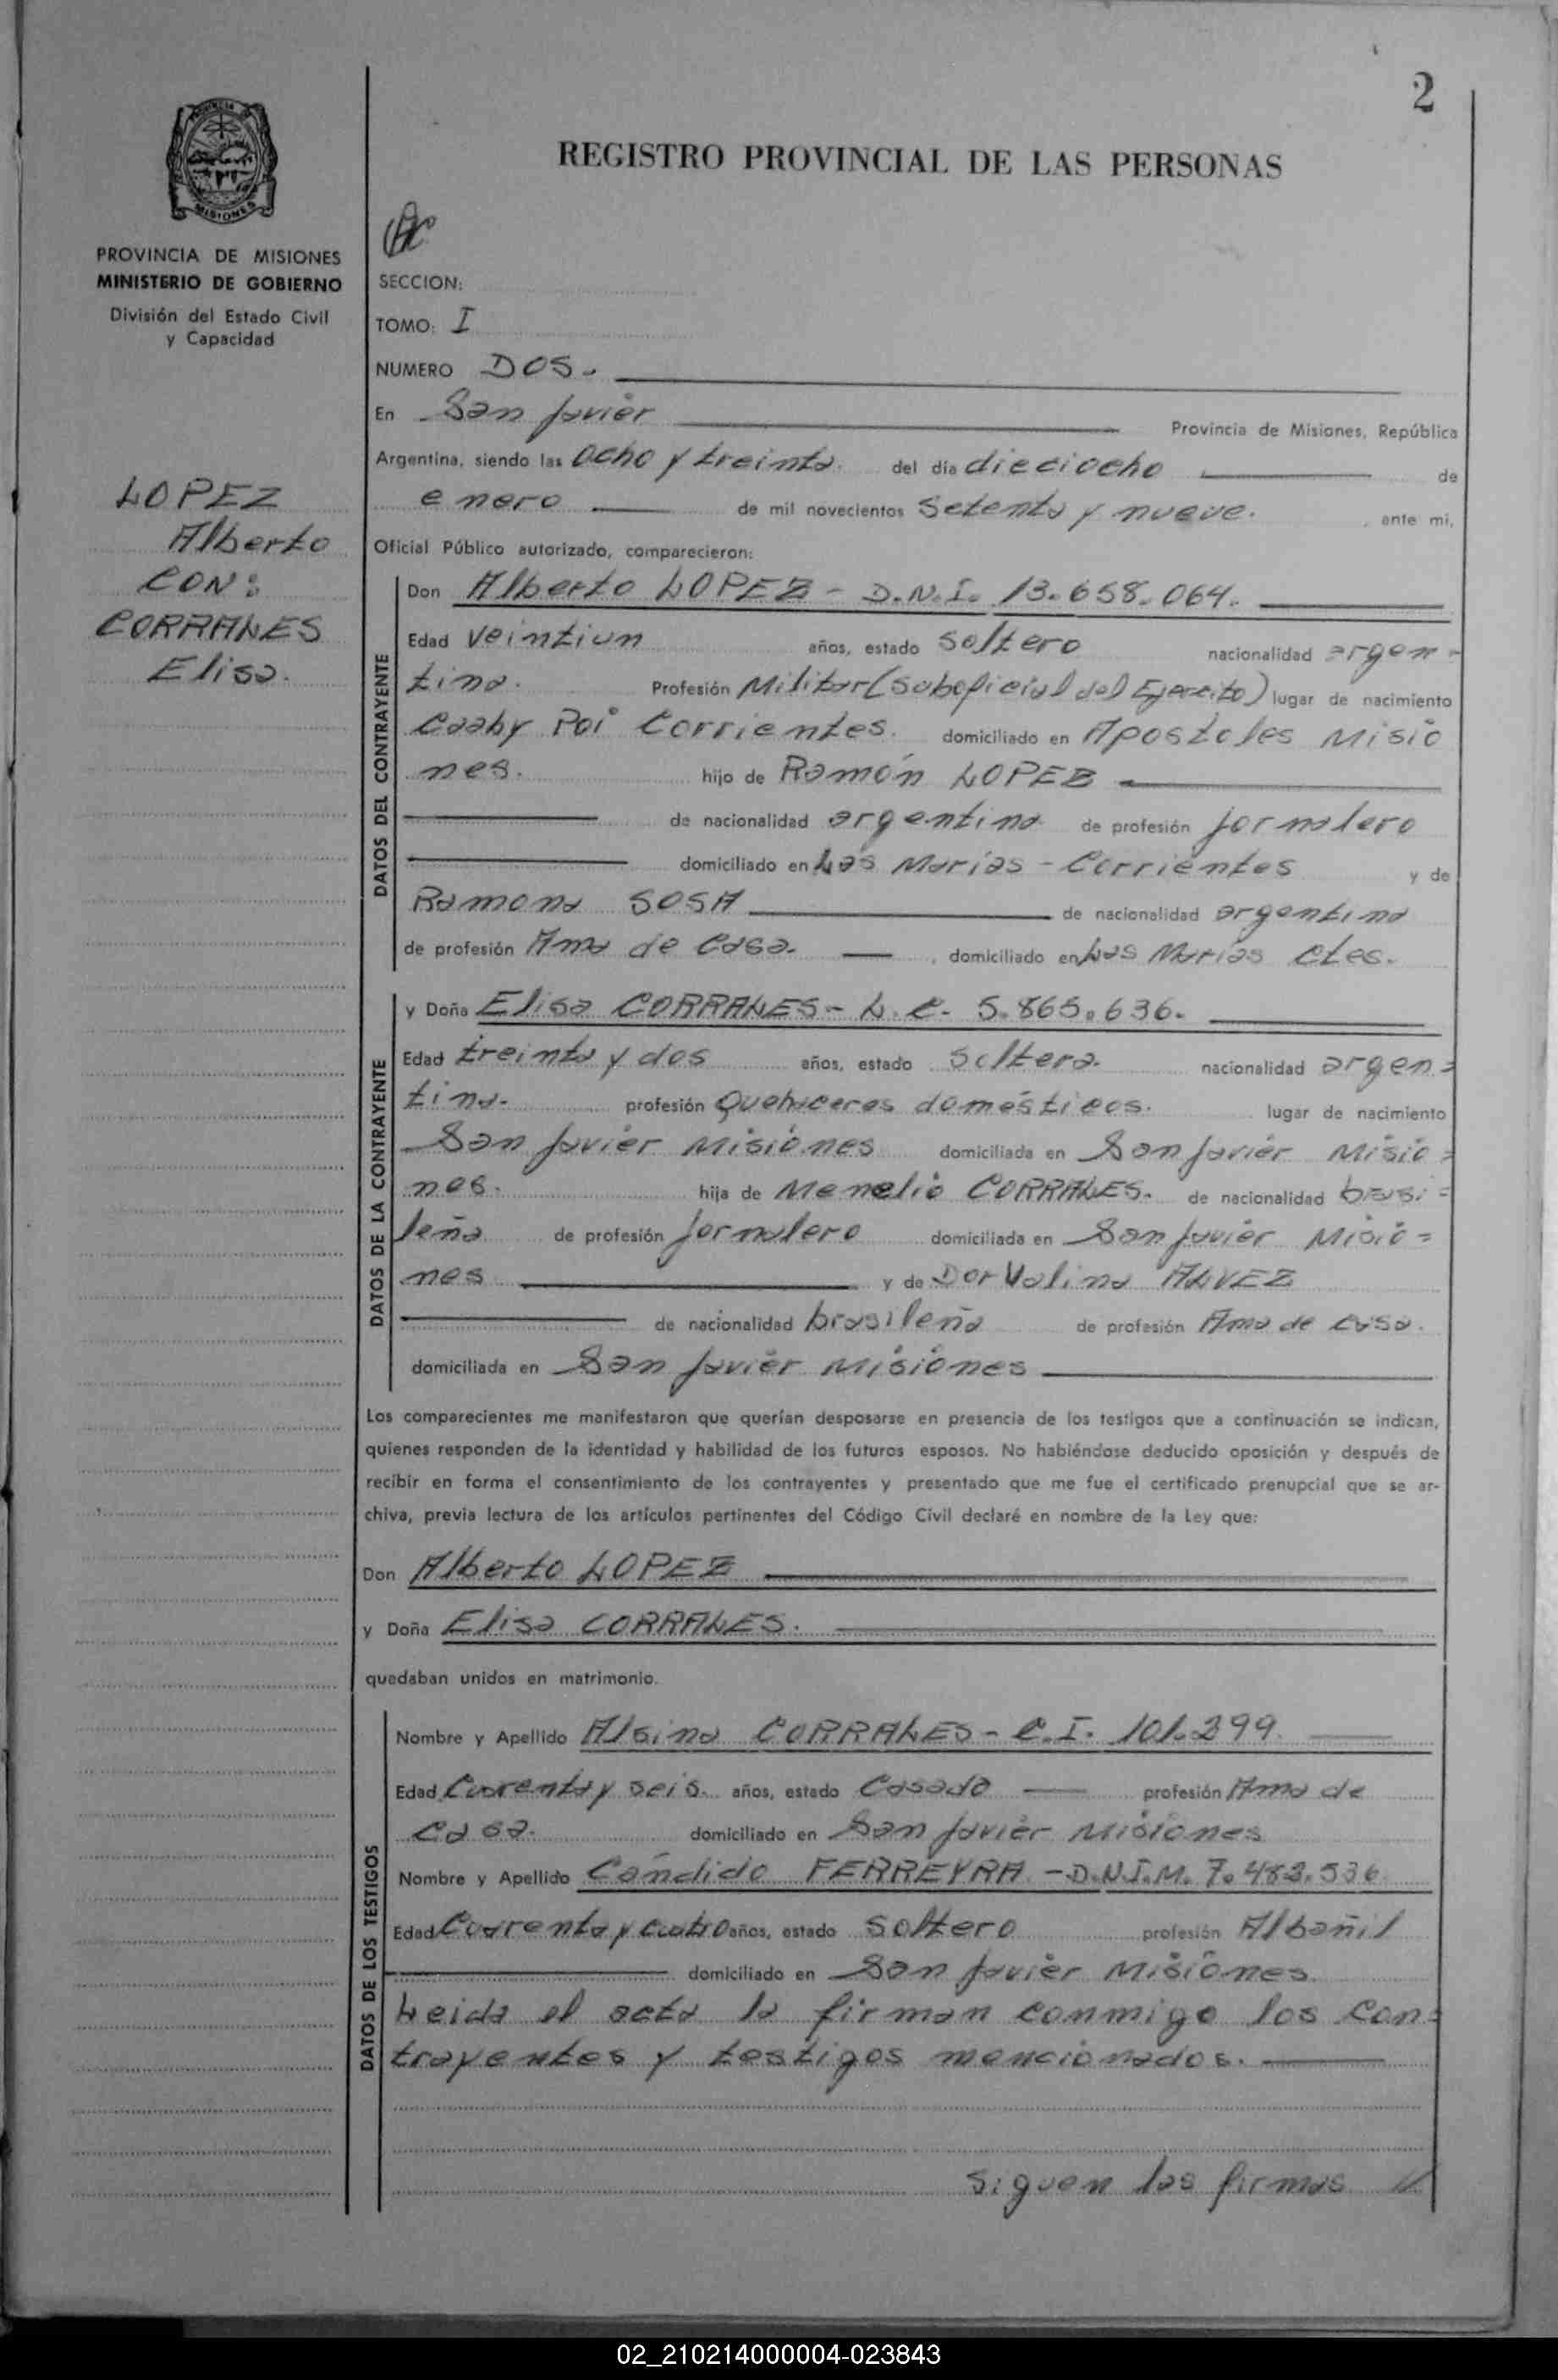 2
REGISTRO PROVINCIAL DE LAS PERSONAS
PROVINCIA
MISIONES
PROVINCIA DE MISIONES
MINISTERIO DE GOBIERNO
División del Estado Civil
y Capacidad
LOPEZ
Alberto
CON:
CORRALES
Elisa.
SECCION:
TOMO: I
NUMERO DOS.
En San Javier Provincia de Misiones, República
Argentina, siendo las ocho y treinta. del día dieciocho de
enero de mil novecientos setenta y nueve. , ante mi,
Oficial Público autorizado, comparecieron:
DATOS DEL CONTRAYENTE
Don Alberto LOPEZ - D.N.I. 13.658.064.
Edad veintiun años, estado soltero nacionalidad argen=
tina. Profesión Militar (suboficial del Ejercito) lugar de nacimiento
Caaby Poi Corrientes. domiciliado en Apostoles Misio
nes. hijo de Ramón LOPEZ
de nacionalidad argentina de profesión jornalero
domiciliado en Las Marías - Corrientes y de
Ramona SOSA de nacionalidad argentina
de profesión Ama de casa. , domiciliado en Las Marías Ctes.
DATOS DE LA CONTRAYENTE
y Doña Elisa CORRALES - L.C. 5.865.636.
Edad treinta y dos años, estado soltera. nacionalidad argen=
tina. profesión Quehaceres domésticos. lugar de nacimiento
San Javier Misiones domiciliada en San Javier Misio=
nes. hija de Menelio CORRALES. de nacionalidad brasi=
leña de profesión jornalero domiciliada en San Javier Misio=
nes y de Dorvalina ALVEZ
de nacionalidad brasileña de profesión Ama de casa.
domiciliada en San Javier Misiones
Los comparecientes me manifestaron que querían desposarse en presencia de los testigos que a continuación se indican,
quienes responden de la identidad y habilidad de los futuros esposos. No habiéndose deducido oposición y después de
recibir en forma el consentimiento de los contrayentes y presentado que me fue el certificado prenupcial que se ar-
chiva, previa lectura de los artículos pertinentes del Código Civil declaré en nombre de la Ley que:
Don Alberto LOPEZ
y Doña Elisa CORRALES.
quedaban unidos en matrimonio.
DATOS DE LOS TESTIGOS
Nombre y Apellido Alsina CORRALES - C.I. 101.299.
Edad Cuarenta y seis. años, estado Casada profesión Ama de
casa. domiciliado en San Javier Misiones
Nombre y Apellido Cándido FERREYRA - D.N.I.M. 7.483.536
Edad Cuarenta y cuatro años, estado soltero profesión Albañil
domiciliado en San Javier Misiones.
Leida el acta la firman conmigo los con=
trayentes y testigos mencionados.
Siguen las firmas //
02_210214000004-023843